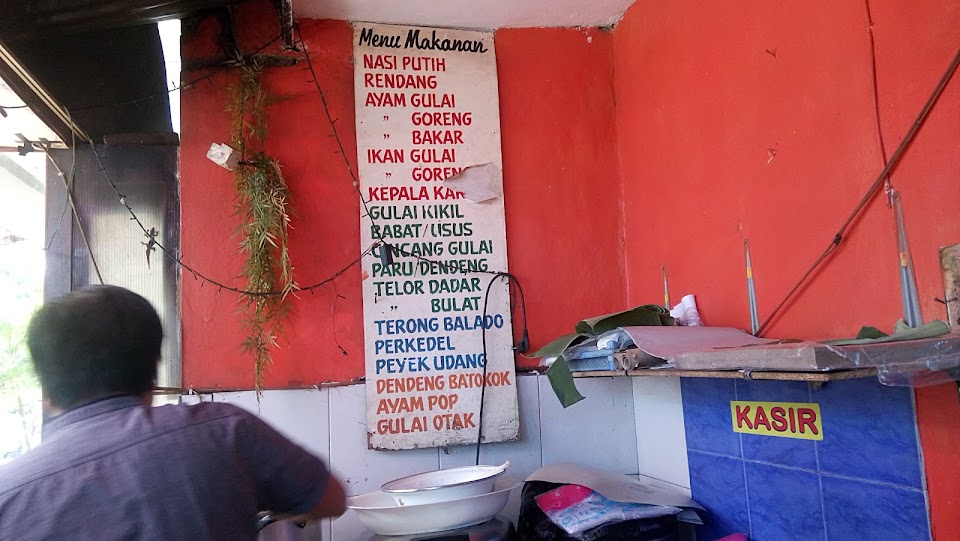 Menu Makanan
NASI PUTIH
RENDANG
AYAM GULAI
" GORENG
" BAKAR
IKAN GULAI
" GORENG
KEPALA
GULAI KIKIL
BABAT/USUS
CINCANG GULAI
PARU/DENDENG
TELOR DADAR
" BULAT
TERONG BALADO
PERKEDEL
PEYEK UDANG
DENDENG BATOKOK
AYAM POP
GULAI OTAK
KASIR